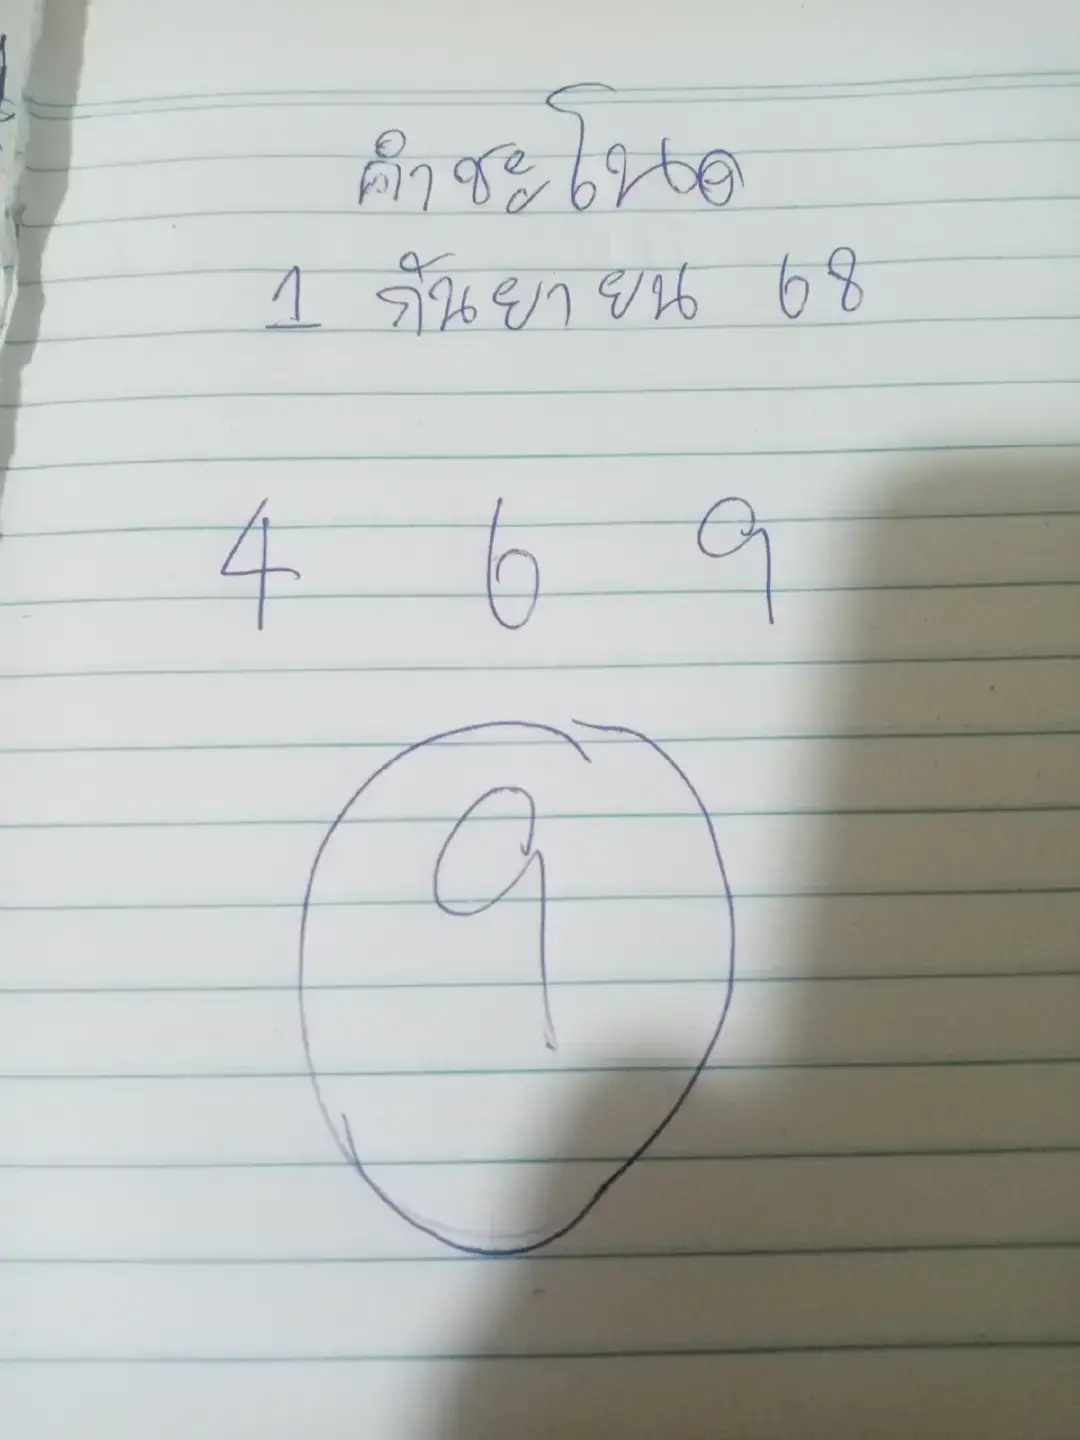 คำชะโนด
1 กันยายน 68
4 6 9
9